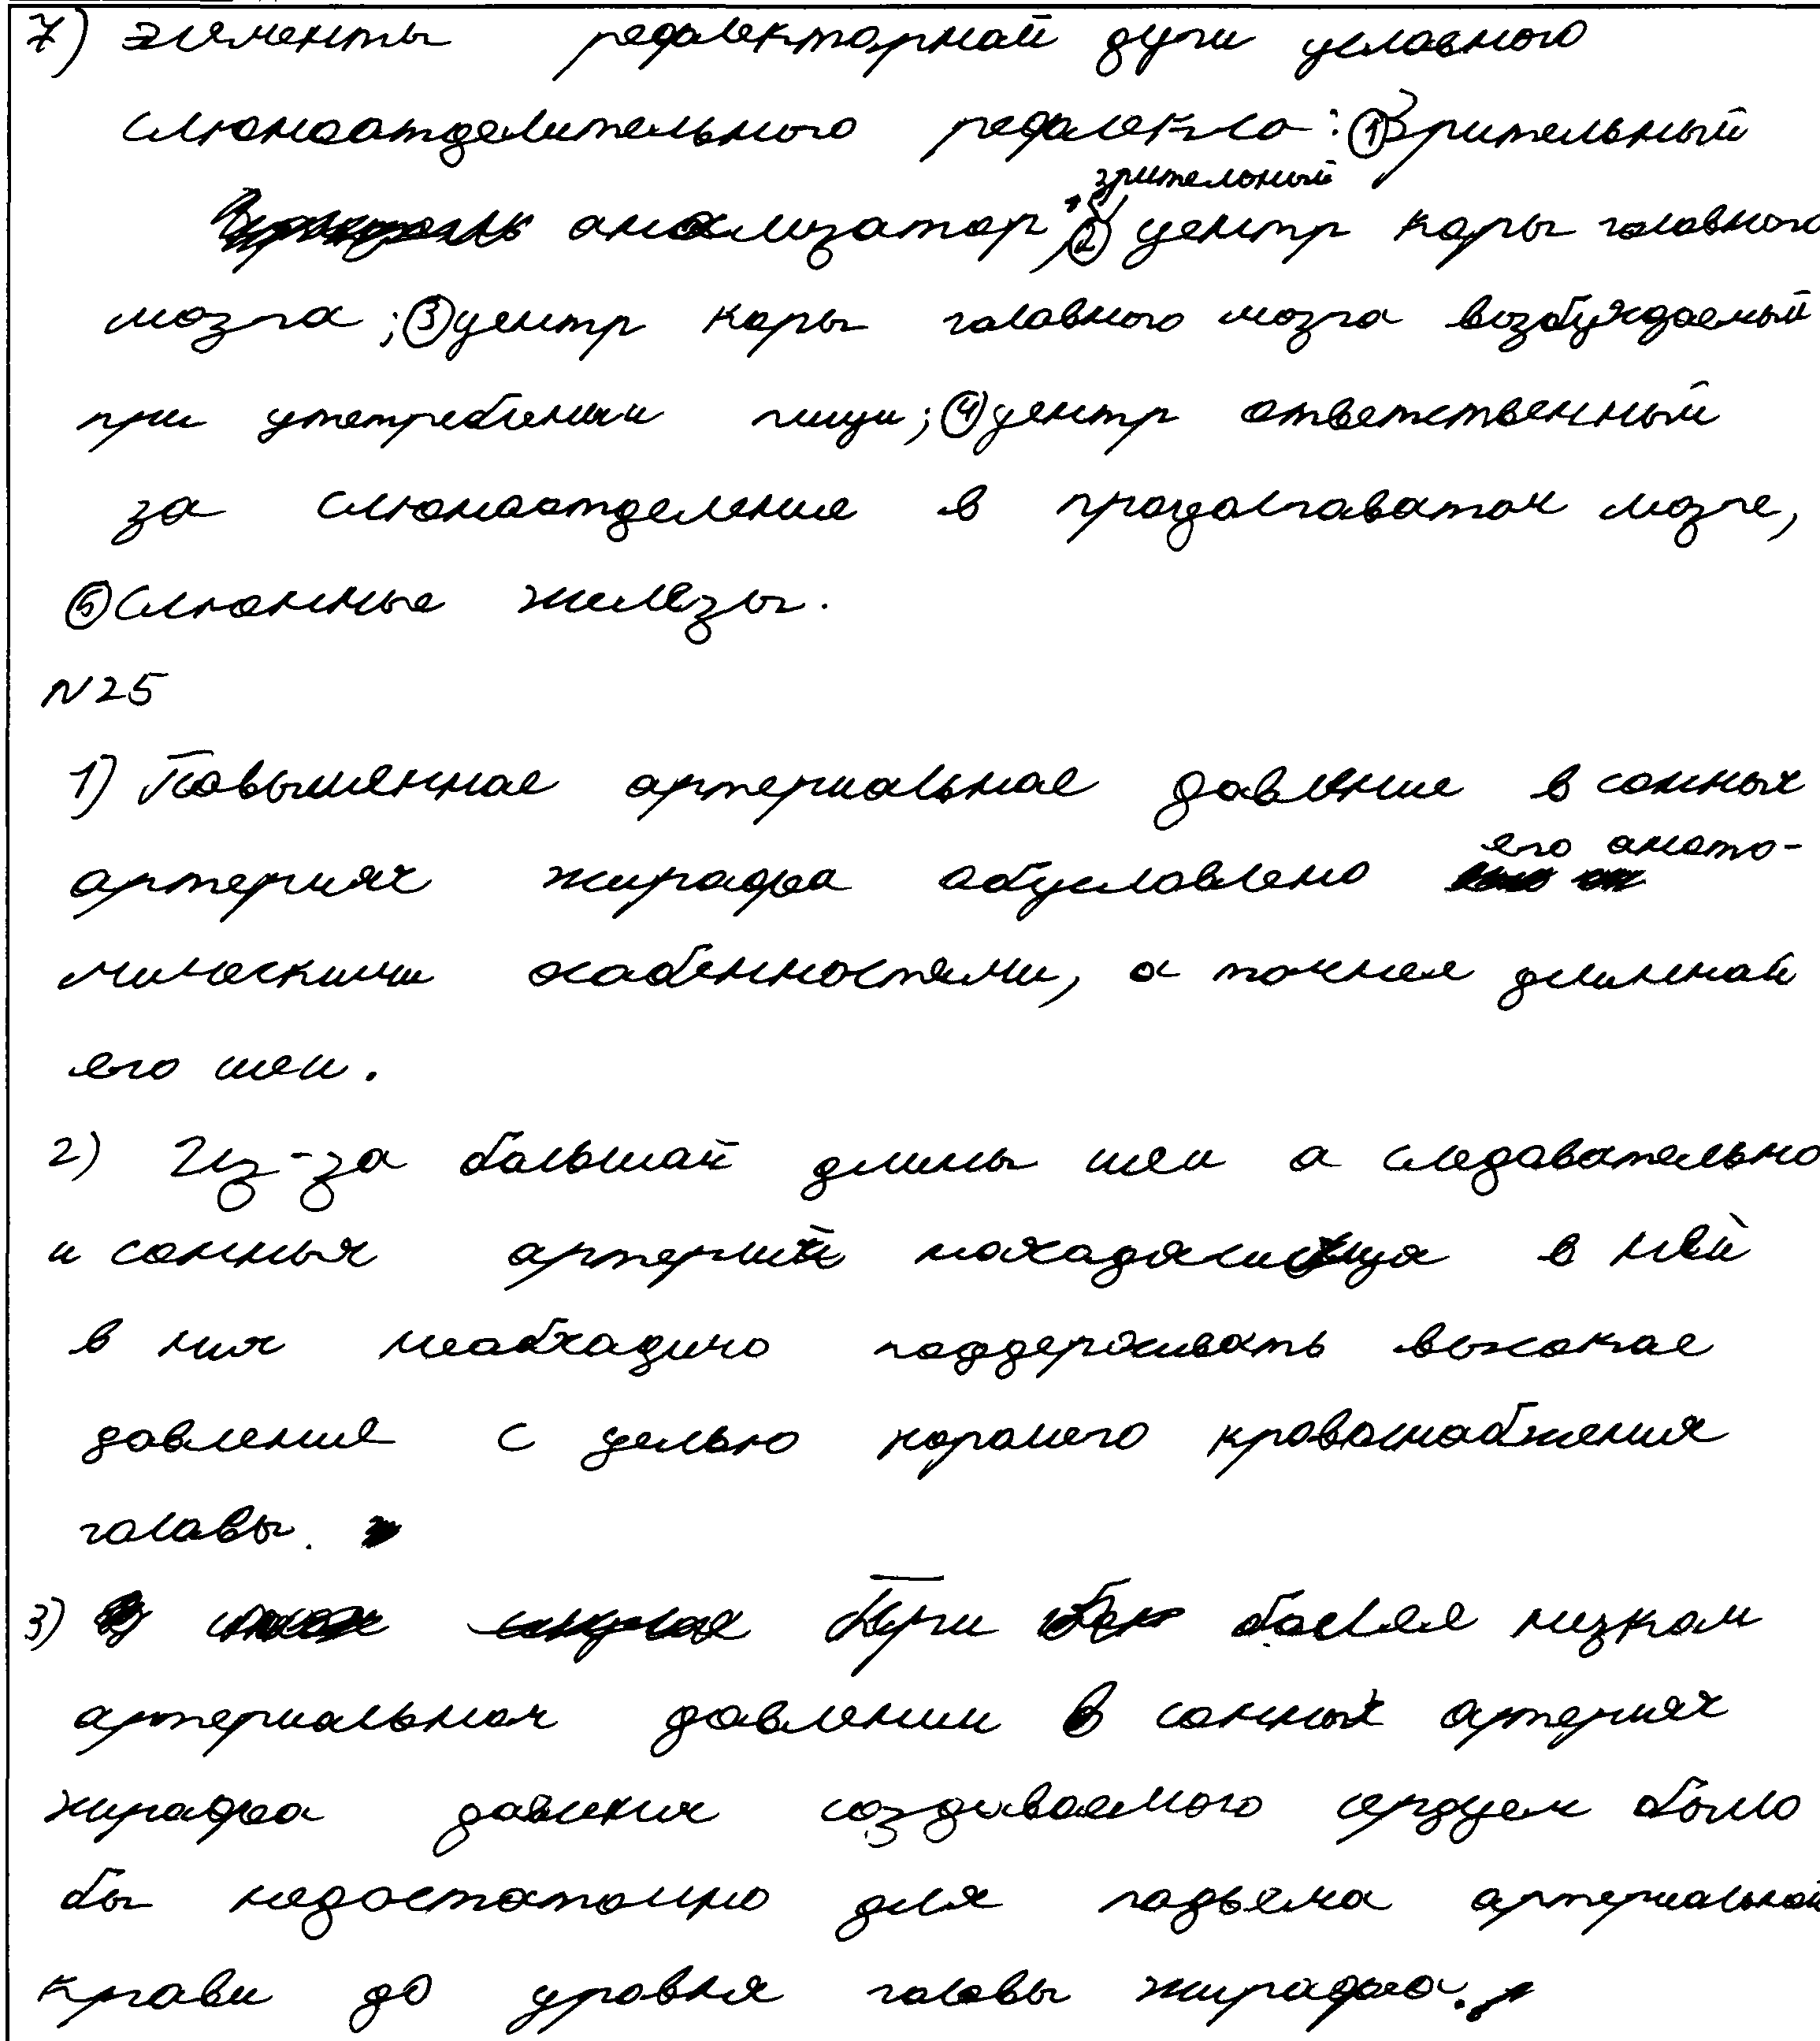 7) элементы рефлекторной дуги условного
слюноотделительного рефлекса: ① Зрительный
анализатор; ② зрительный центр коры головного
мозга; ③ центр коры головного мозга возбуждаемый
при употреблении пищи; ④ центр ответственный
за слюноотделение в продолговатом мозге,
⑤ Слюнные железы.
N25
1) Повышенное артериальное давление в сонных
артериях жирафа обусловлено его анато-
мическими особенностями, а точнее длинной
его шеи.
2) Из-за большой длины шеи а следовательно
и сонных артерий находящихся в ней
в них необходимо поддерживать высокое
давление с целью хорошего кровоснабжения
головы.
3) При более низком
артериальном давлении в сонных артериях
жирафа давления создаваемого сердцем было
бы недостаточно для подъема артериальной
крови до уровня головы жирафа.